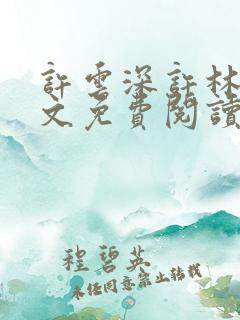 許雲深許林
文免費閱讀
程碧英
未經同意禁止轉載